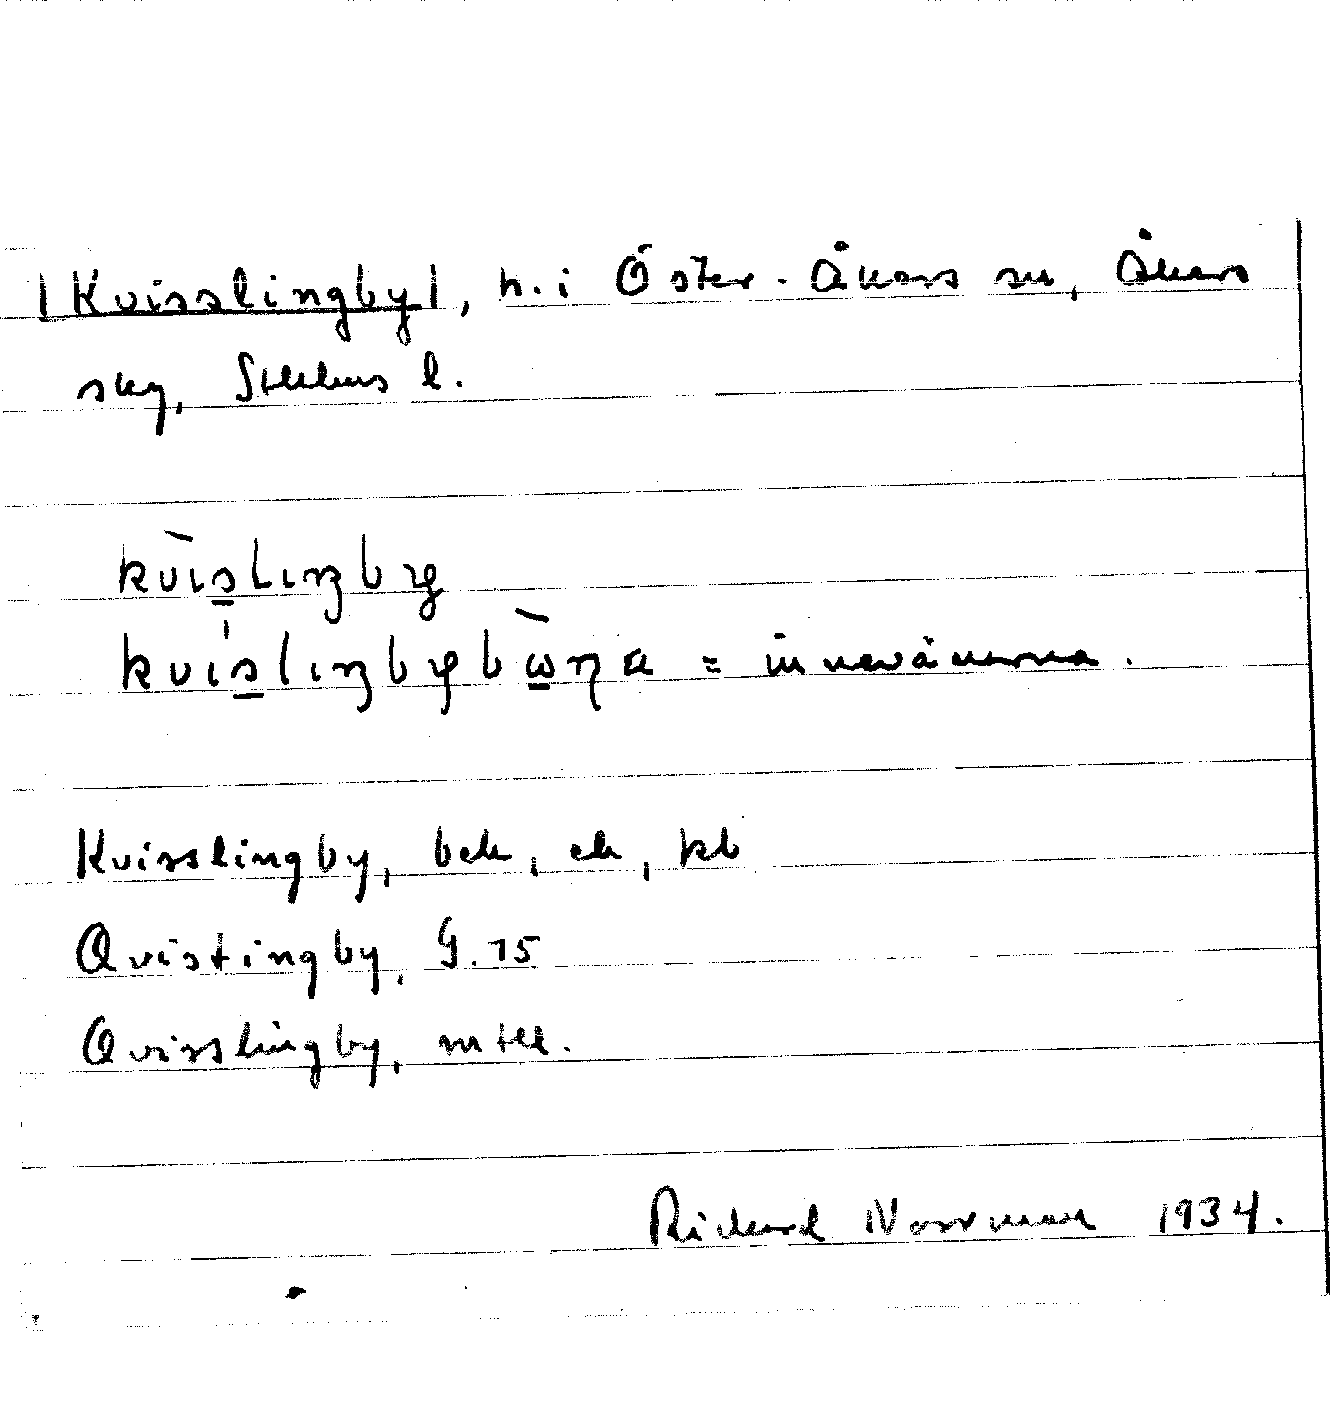 |Kvisslingby|, h. i Öster-Åkers sn, Åkers
sky, Sthlms l.
kvìslıŋby
kvíslıŋbybὼηa = innevånarna.
Kvisslingby, bek, ek, kb
Qvistingby, G. 75
Qvisslingby, mtll.
Richard Norrman 1934.